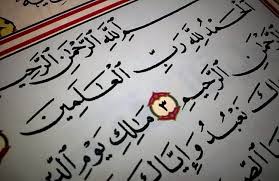 ٱللَّهِ ٱلرَّحْمَٰنِ ٱلرَّحِيمِ
ٱلْحَمْدُ لِلَّهِ رَبِّ ٱلْعَٰلَمِينَ
ٱلرَّحْمَٰنِ ٱلرَّحِيمِ ٣ مَٰلِكِ يَوْمِ ٱلدِّينِ
نَعْبُدُ وَإِيَّاكَ